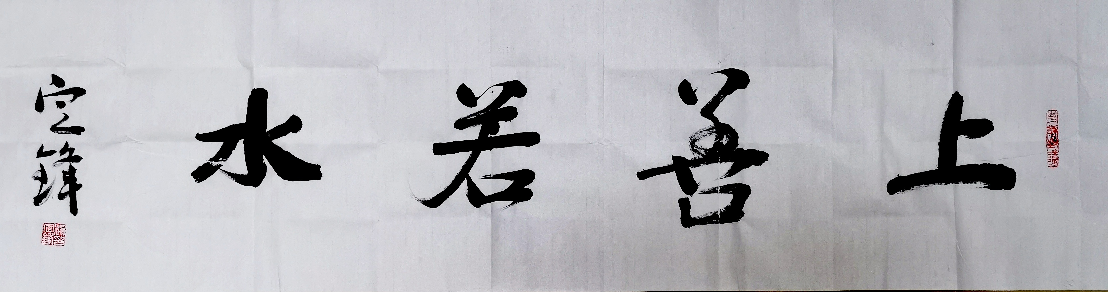 上善若水
定鋒